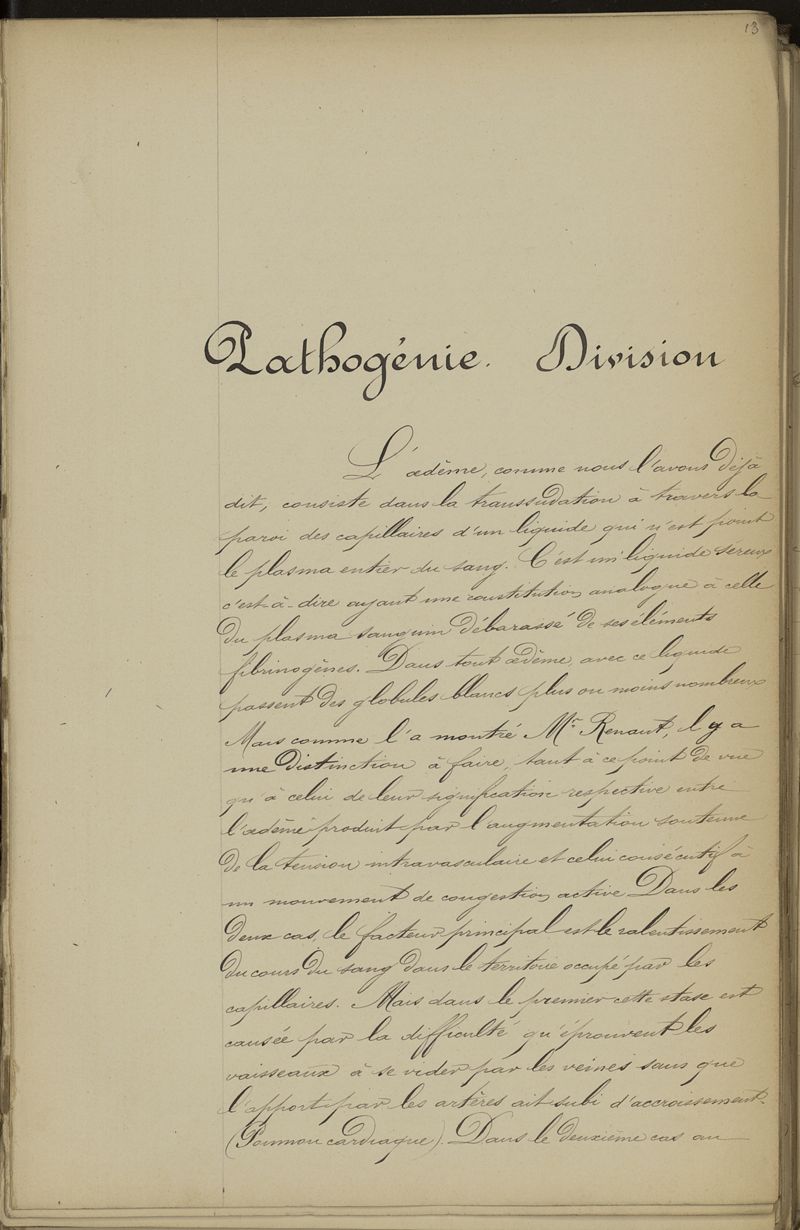 13
Pathogénie. Division
L'œdème, comme nous l'avons déjà
dit, consiste dans la transsudation à travers la
paroi des capillaires d'un liquide qui n'est point
le plasma entier du sang. C'est un liquide séreux
c'est-à-dire ayant une constitution analogue à celle
du plasma sanguin débarassé de ses éléments
fibrinogènes. Dans tout œdème, avec ce liquide
passent des globules blancs plus ou moins nombreux
Mais comme l'a montré Mr Renaut, il y a
une distinction à faire, tant à ce point de vue
qu'à celui de leur signification respective entre
l'œdème produit par l'augmentation soutenue
de la tension intravasculaire et celui consécutif à
un mouvement de congestion active Dans les
deux cas, le facteur principal est le ralentissement
du cours du sang dans le territoire occupé par les
capillaires. Mais dans le premier cette stase est
causée par la difficulté qu'éprouvent les
vaisseaux à se vider par les veines sans que
l'apport par les artères ait subi d'accroissement.
(Poumon cardiaque). Dans le deuxième cas au